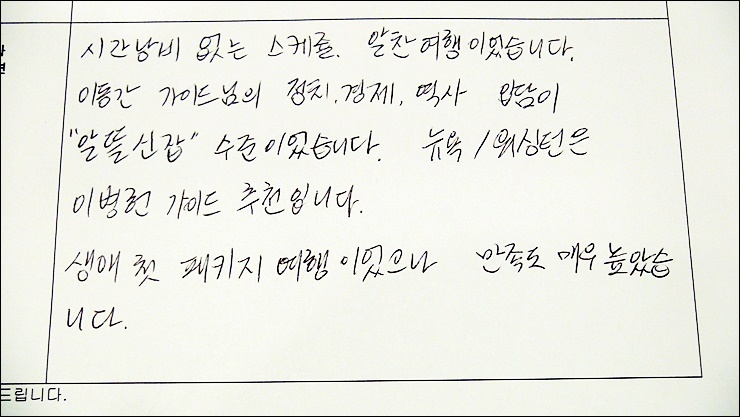 시간낭비 없는 스케쥴. 알찬여행이었습니다.
이동간 가이드님의 정치.경제, 역사 입담이
"알뜰신잡" 수준이었습니다. 뉴욕/워싱턴은
이병헌 가이드 추천입니다.
생애 첫 패키지 여행이었으나 만족도 매우 높았습
니다.
드립니다.